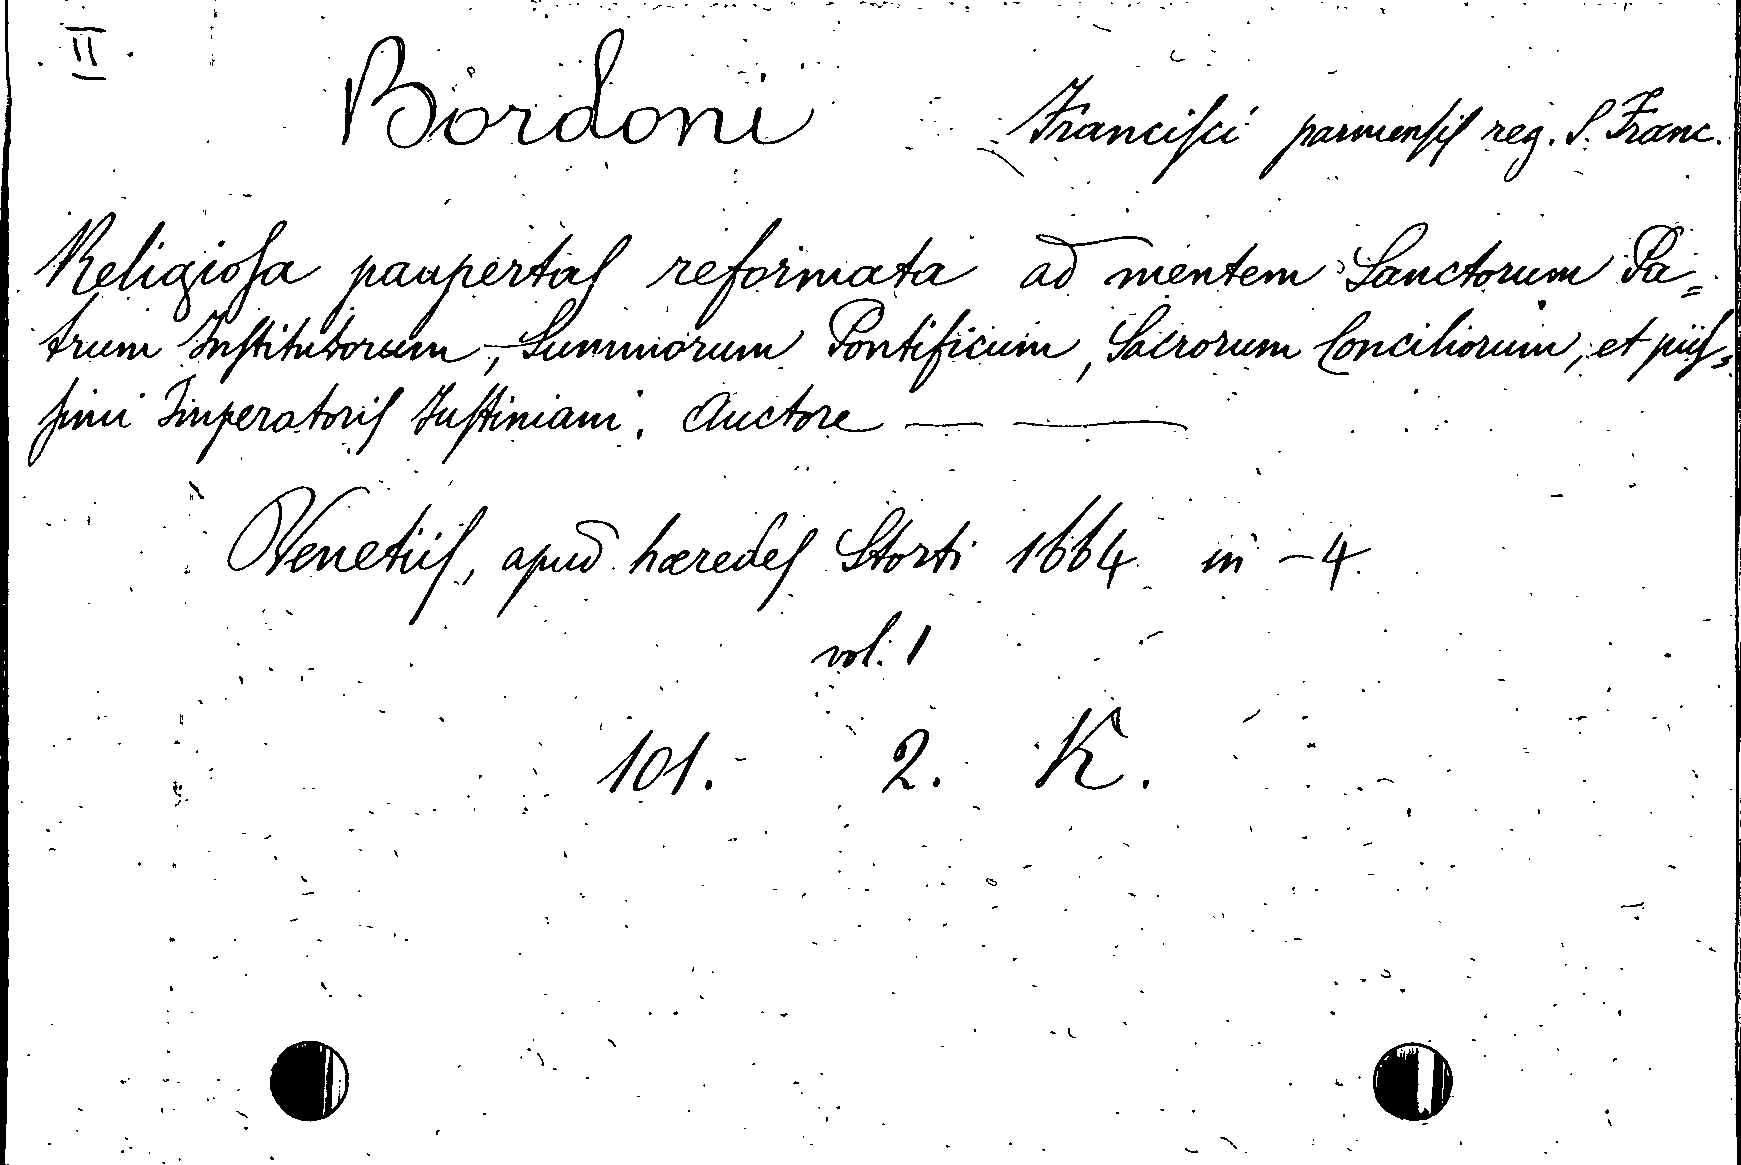 II
Bordoni Francisci parmensis reg. S. Franc.
Religiosa paupertas reformata ad mentem Sanctorum Pa=
trum Institutorum, Summorum Pontificum, Sacrorum Conciliorum, et piis=
simi Imperatoris Justiniani. Auctore — —
Venetiis, apud haeredes Storti 1664 in -4
vol. 1
101. 2. K.